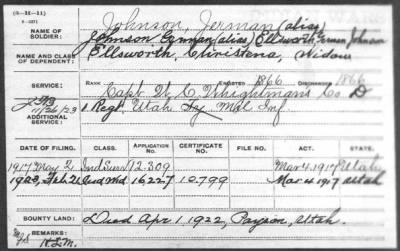 (3-11-11)
NAME OF SOLDIER: Johnson, Jerman (alias)
Johnson German (alias) Ellsworth German Johnson
NAME AND CLASS OF DEPENDENT: Ellsworth, Christena, Widow
SERVICE: RANK ENLISTED 1866 DISCHARGED 1866
Capt W. C. Whightmans Co D
11/26/23 1 Regt. Utah Ty Mil Inf
ADDITIONAL SERVICE:
DATE OF FILING. CLASS. APPLICATION NO. CERTIFICATE NO. FILE NO. ACT. STATE.
1917 May 2 Ind Surv 12.309 Mar 4, 1917 Utah
1923, Feb. 21 Ind Wid. 16227 10799 Mar 4 1917 Utah
BOUNTY LAND: Died Apr 1, 1922, Payson, Utah.
REMARKS: